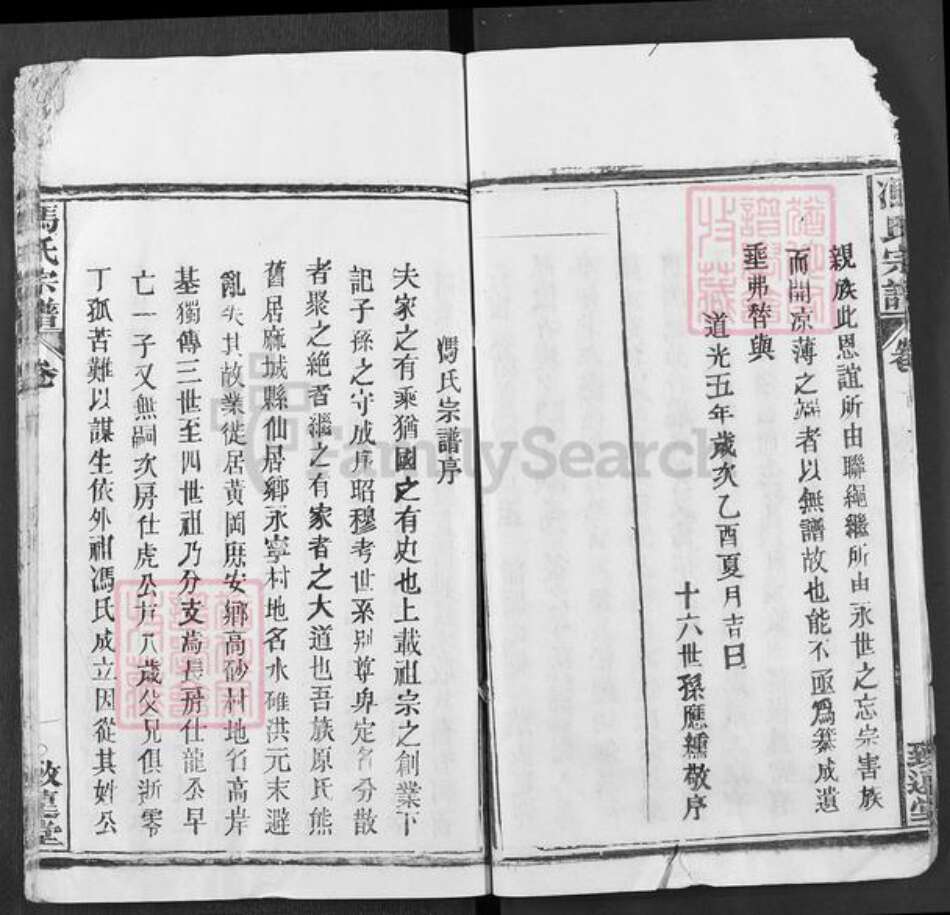 馮氏宗譜
卷
親族此恩誼所由聯繩繼所由永世之忘宗害族
而開凉薄之端者以無譜故也能不亟為纂成遺
埀弗替與
道光五年歲次乙酉夏月吉日
十六世孫應龝敬序
馮氏宗譜序
夫家之有乘猶國之有史也上載祖宗之創業下
記子孫之守成序昭穆考世系别尊卑定名分散
者聚之絶者繼之有家者之大道也吾族原氏熊
舊居麻城縣仙居鄉永寧村地名水碓洪元末避
亂失其故業徙居黄岡庶安鄉高砂村地名高岸
基獨傳三世至四世祖乃分支為長房仕龍公早
亡一子又無嗣次房仕虎公廿八歲父兄俱逝零
丁孤苦難以謀生依外祖馮氏成立因從其姓公
馮氏宗譜
卷
FamilySearch